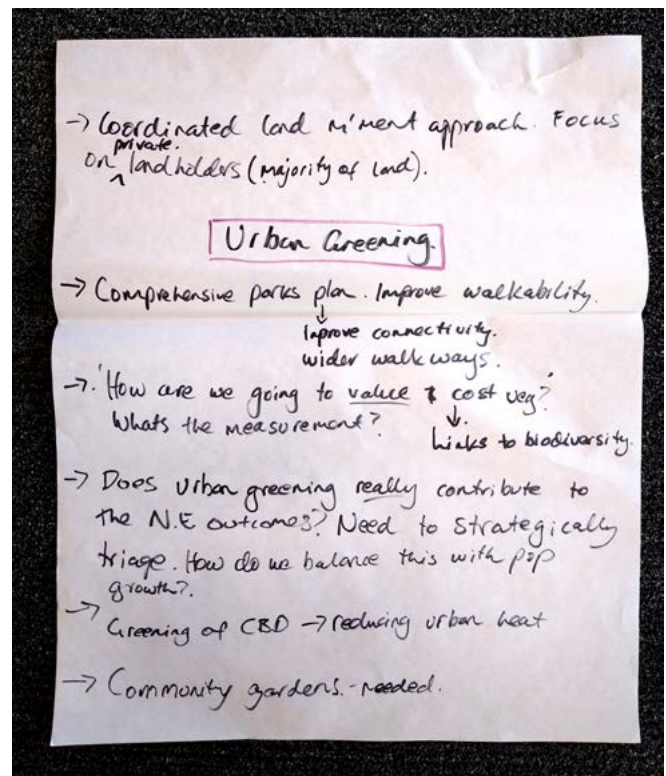 → Coordinated land m'ment approach. Focus
on private. landholders (majority of land).
Urban Greening.
→ Comprehensive parks plan. Improve walkability.
↓
Improve connectivity.
wider walkways.
→. 'How are we going to value & cost veg?'
Whats the measurement?
↓
Links to biodiversity.
→ Does urban greening really contribute to
the N.E outcomes? Need to strategically
triage. How do we balance this with pop
growth?.
→ Greening of CBD → reducing urban heat
→ Community gardens. - needed.